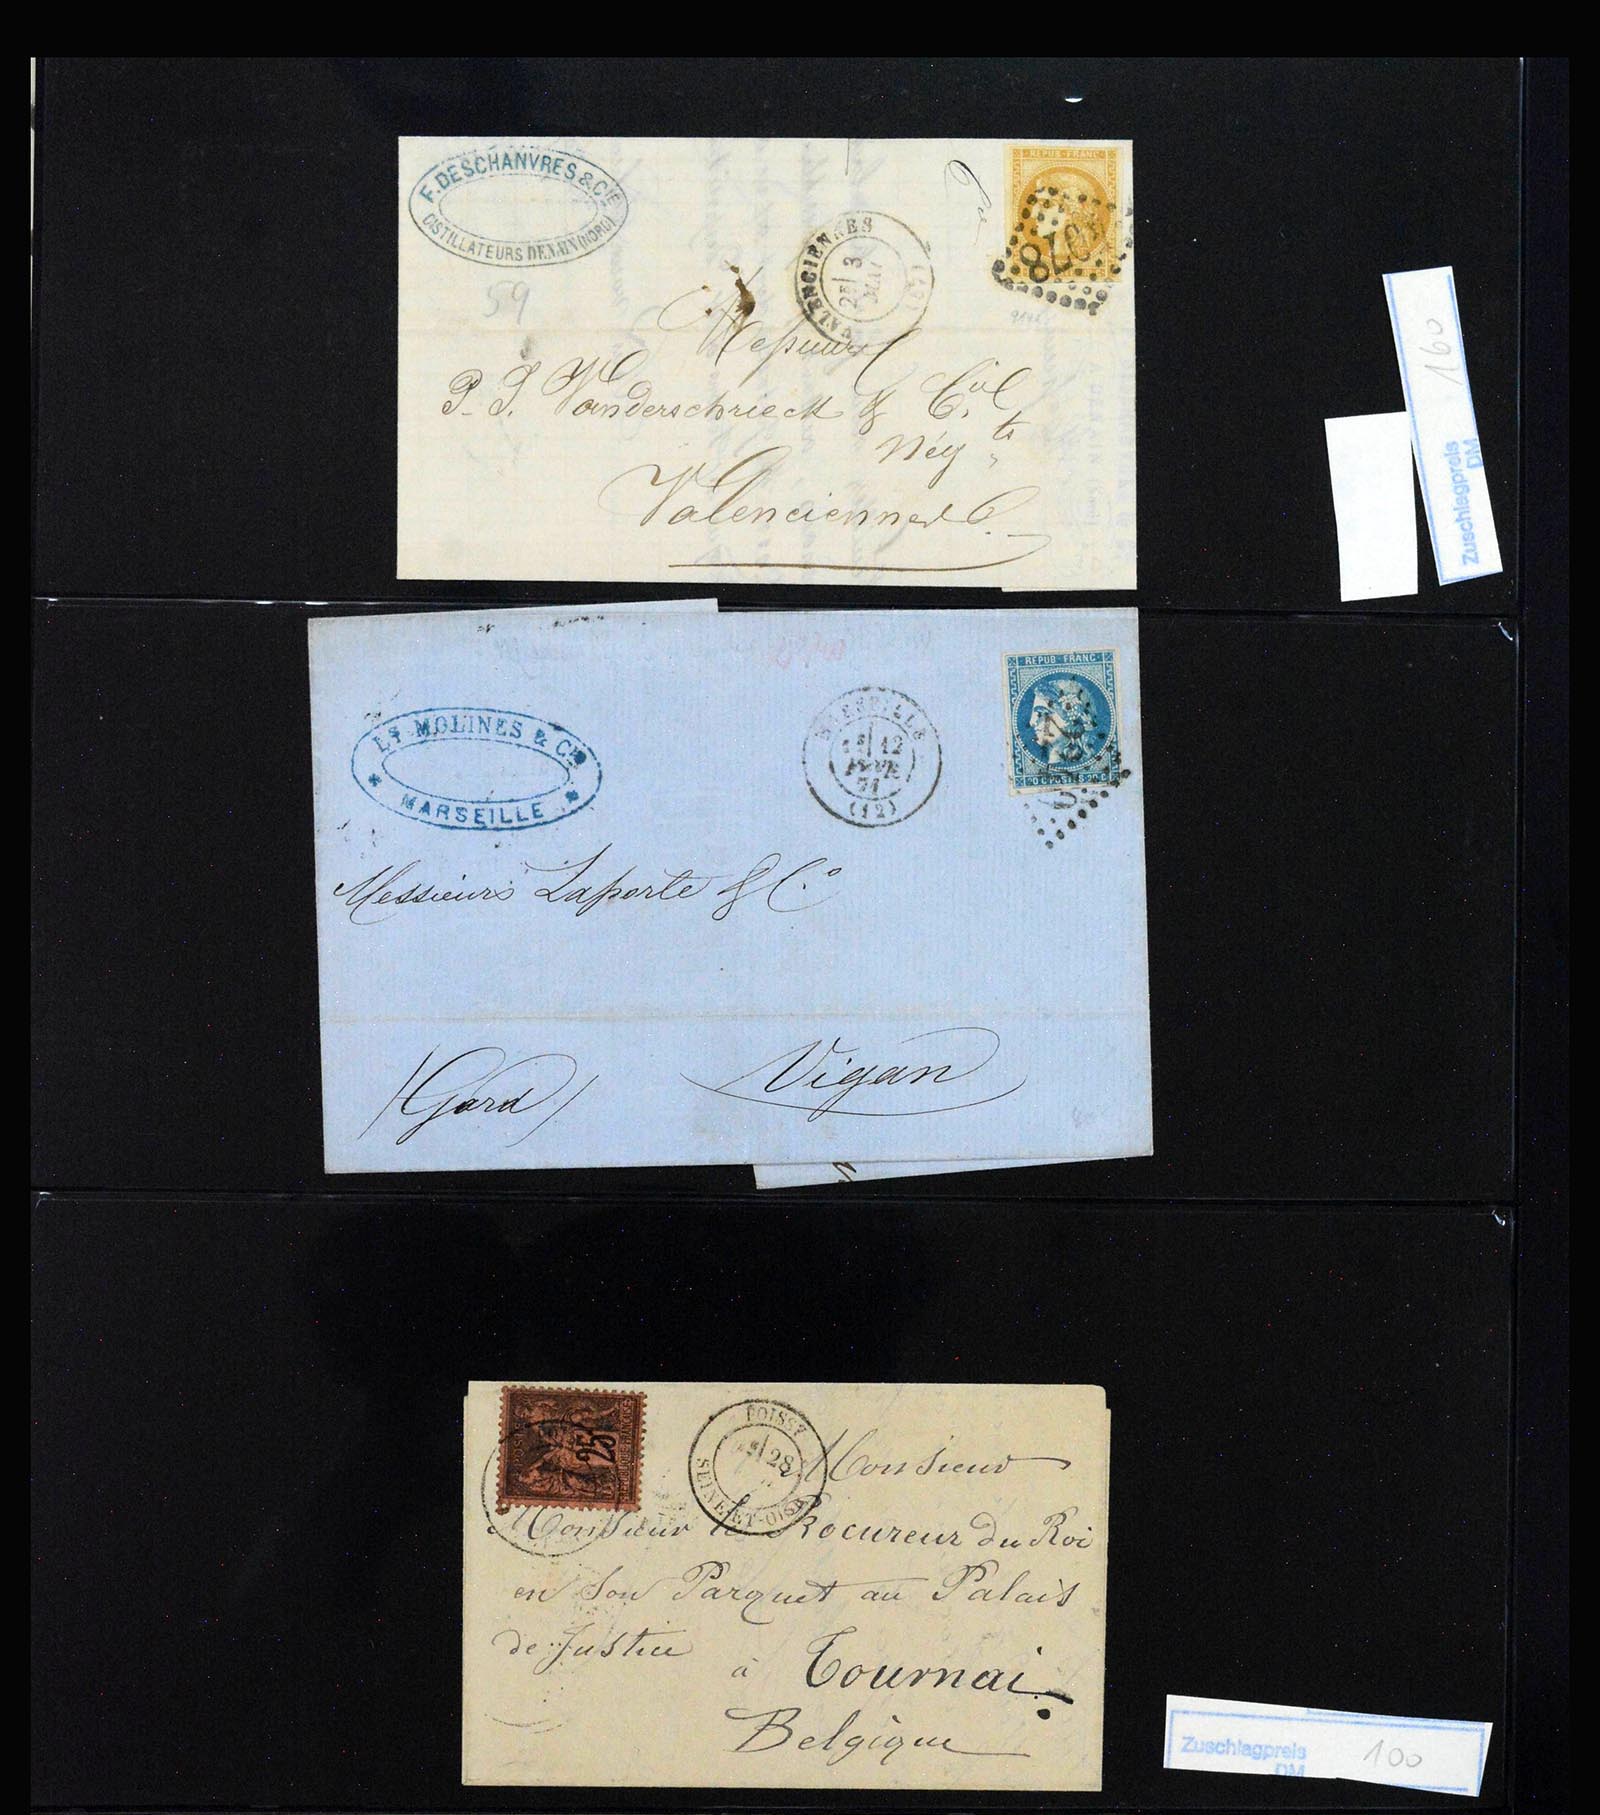 F. DESCHANVRES & CIE
DISTILLATEURS DENAIN (NORD)
59
VALENCIENNES
2E 3
MAI
REPUB · FRANC
4078
Messieurs
P. J. Vanderschrieck & Cie
Négts
Valenciennes
160
Zuschlagpreis
DM
LT MOLINES & CIE
MARSEILLE
MARSEILLE
12
71
(12)
REPUB · FRANC
20 C POSTES 20 C
Messieurs Laporte & Co
Vigan
(Gard)
25
REPUBLIQUE FRANCAISE
POISSY
28
SEINE-ET-OISE
Monsieur
Monsieur le Procureur du Roi
en Son Parquet au Palais
de Justice
à Tournai
Belgique
Zuschlagpreis
DM
100